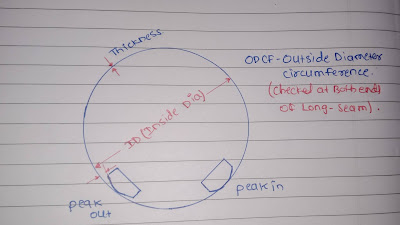 Thickness
ODCF - Outside Diameter
circumference.
(checked at Both end
of Long-seam).
ID (Inside Dia)
peak
out
peak in